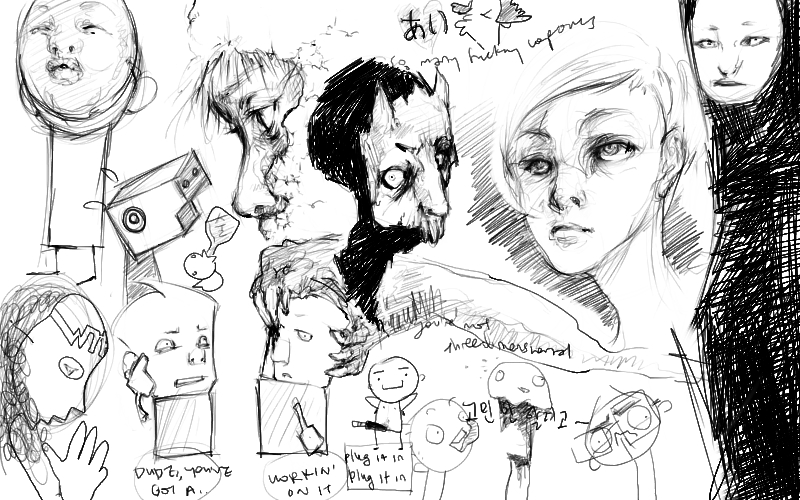 あい
so many fucking vapours
WTF
you're not
threedimensional
고민 한 알지고~
DUDE, YOU'VE
GOT A..
WORKIN'
ON IT
plug it in
plug it in